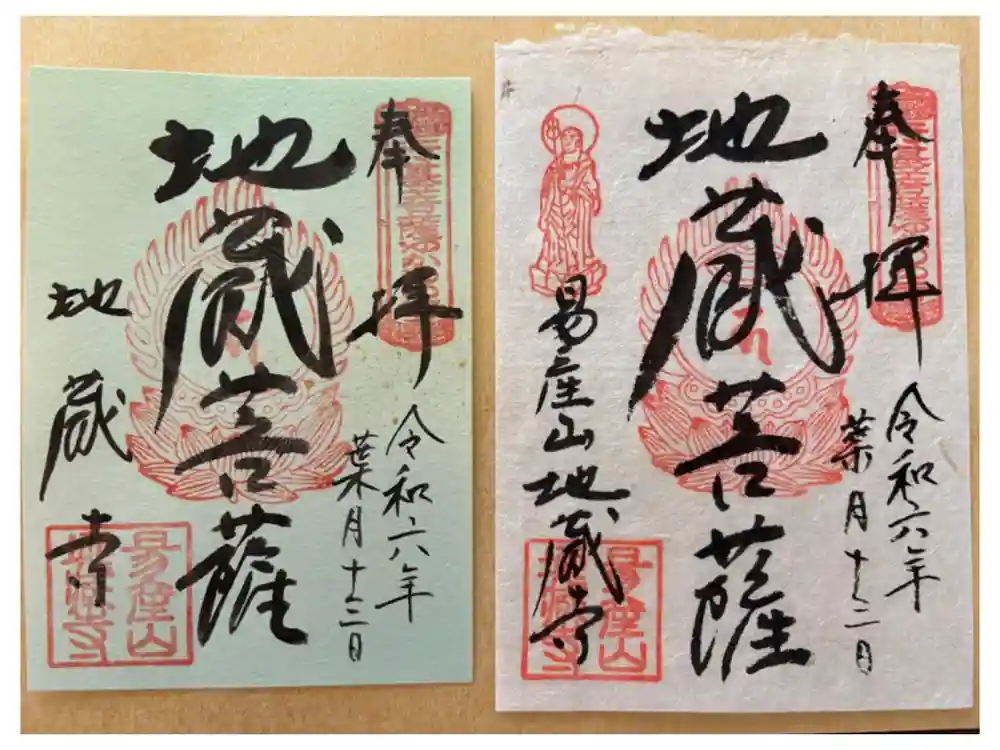 奉拝
令和六年
葉月十二日
地蔵菩薩
地蔵寺
易産山
奉拝
令和六年
葉月十二日
地蔵菩薩
易産山地蔵寺
易産山